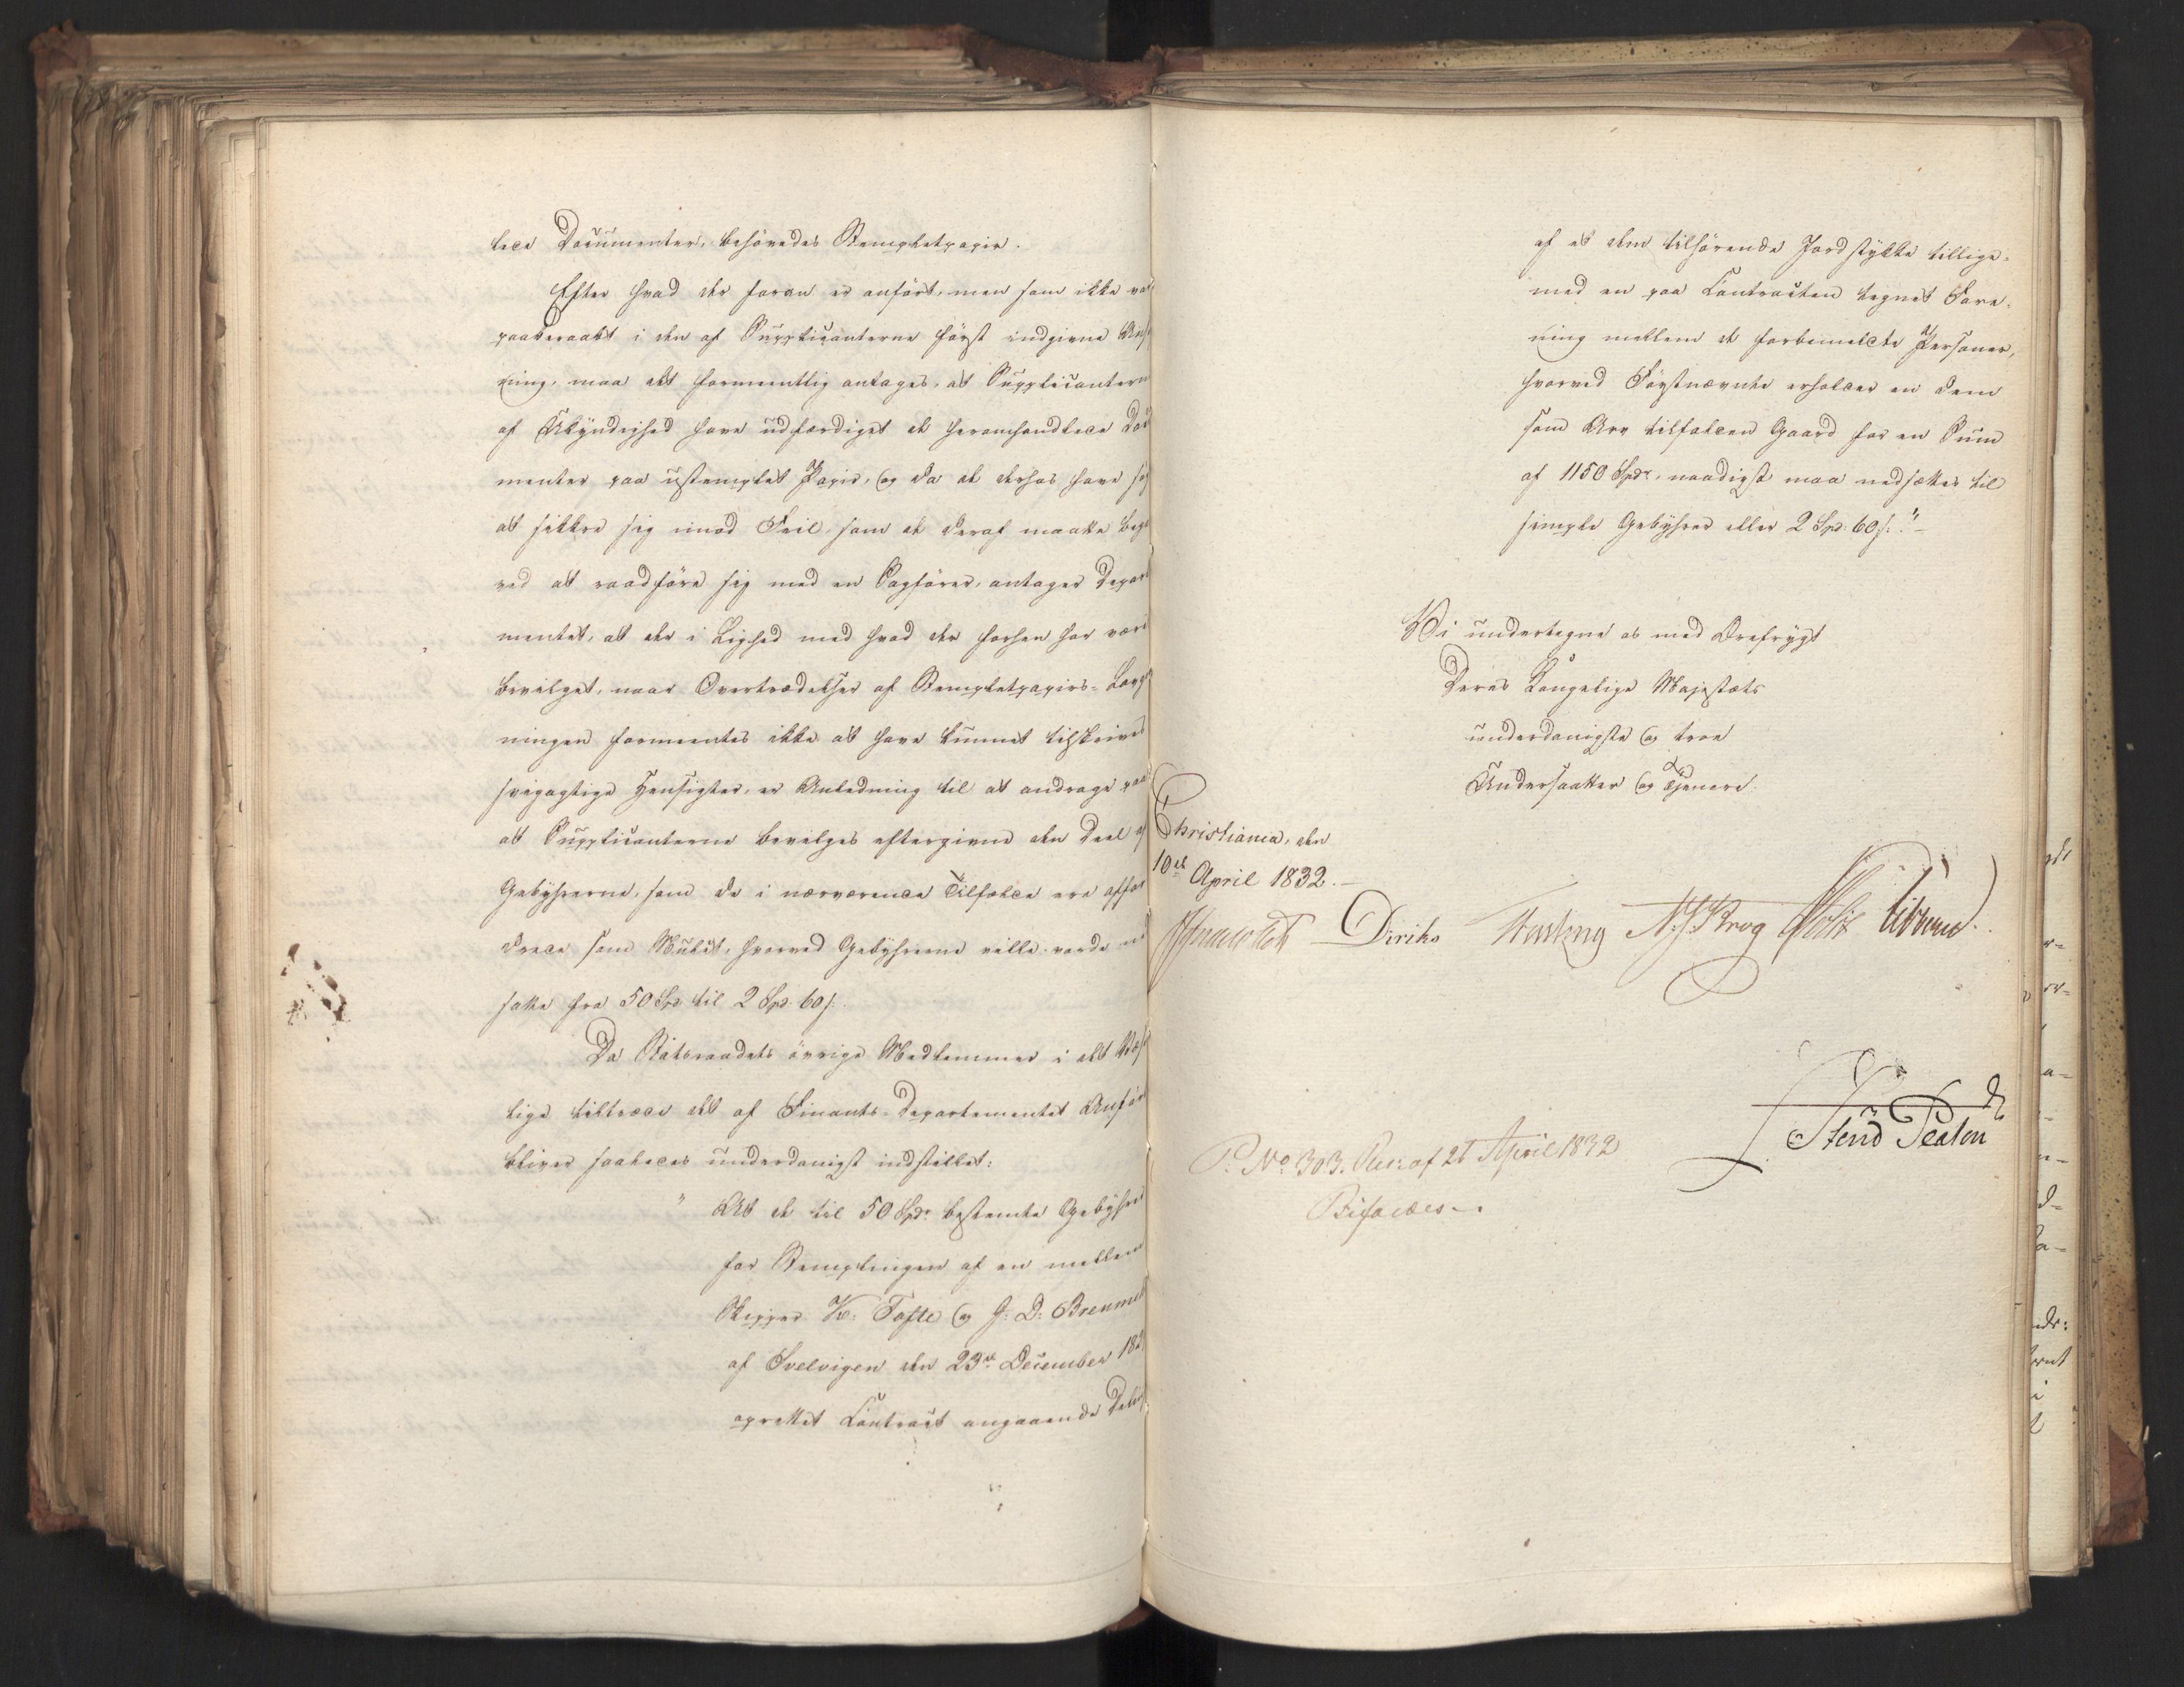 lede Documenter, behøvedes Stempletpapir.
Efter hvad der foran er anført, men som ikke var
paaberaabt i den af Supplicanterne først indgivne Ans
ning, maa det formeentlig antages, at Supplicantern
af Ukyndighed have udfærdiget de heromhandlede Docu
menter paa ustemplet Papir, og da de derhos have søg
at sikkre sig imod Feil, som de deraf maatte bega
ved at raadføre sig med en Sagfører, antager Depart
mentet, at der i Lighed med hvad der forhen har være
bevilget, naar Overtrædelser af Stempletpapirs-Lovgi
ningen formeentes ikke at have kunnet tilskrives
svigagtige Hensigter, er Anledning til at andrage paa
at Supplicanterne bevilges eftergivne den Deel af
Gebyhrerne, som de i nærværende Tilfælde ere affor
drede som Mulct, hvorved Gebyhrerne ville vorde ned
satte fra 50 Spd. til 2 Spd. 60 s.
Da Statsraadets øvrige Medlemmer i det Væsent
lige tiltræde det af Finants-Departementet Anført
bliver saaledes underdanigst indstillet:
" At de til 50 Spdr. bestemte Gebyhrer
for Stemplingen af en mellem
Skipper K. Tofte og J. D. Bremmel
af Svelvigen den 23de December 182
oprettet Contract angaaende Deling
af et dem tilhørende Jordstykke tillige-
med en paa Contracten tegnet Fore-
ning mellem de forbemeldte Personer,
hvorved Førstnævnte erholder en dem
som Arv tilfalden Gaard for en Sum
af 1150 Spdr., naadigst maa nedsættes til
simple Gebyhrer eller 2 Spd. 60 s."
Vi undertegne os med Ærefrygt
Deres Kongelige Majestæts
underdanigste og troe
Undersaatter og Tjenere.
Christiania, den
10de April 1832.
Diriks N. J. Krog
P. No 303. Res: af 21 April 1832
Bifaldes.